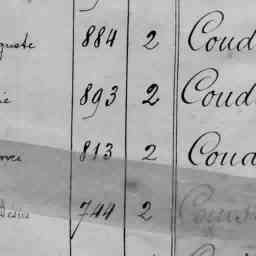 guste 884 2 Coud
ie 893 2 Coud
813 2 Coud
Désiré 744 2 Cous